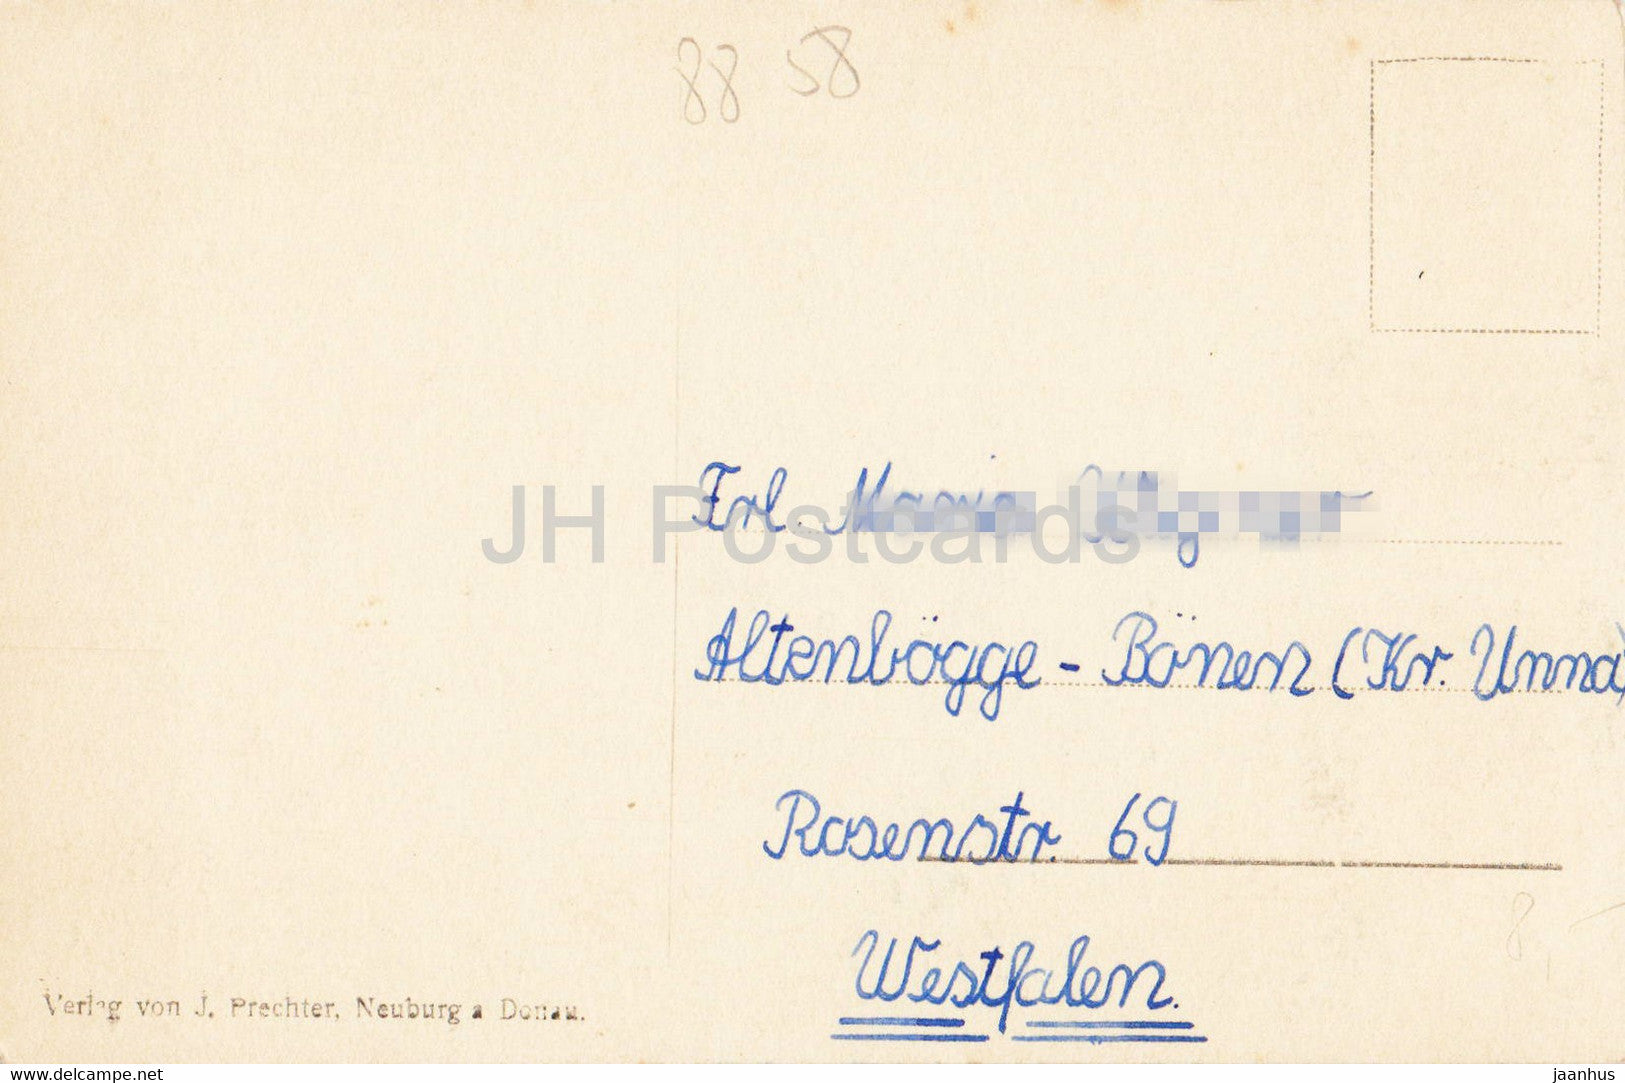 88 58
Frl.
Altenbögge - Bönen (Kr. Unna)
Rosenstr. 69
Westfalen.
8,-
Verlag von J. Prechter, Neuburg a Donau.
JH Postcards
www.delcampe.net
jaanhus